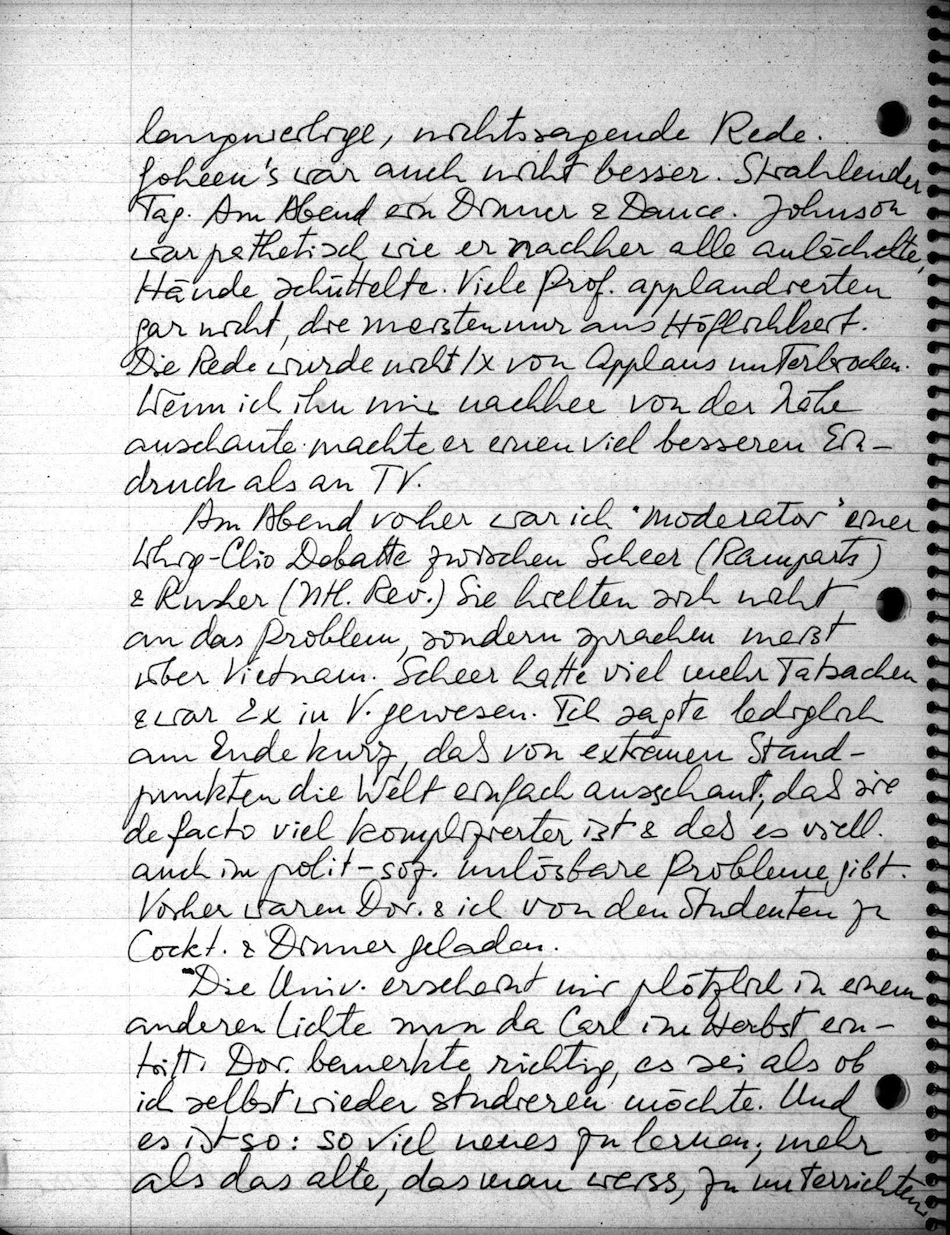 langweilige, nichtssagende Rede.
Goheen's war auch nicht besser. Strahlender
Tag. Am Abend ein Dinner & Dance. Johnson
war pathetisch wie er nachher alle anlächelte,
Hände schüttelte. Viele Prof. applaudierten
gar nicht, die meisten nur aus Höflichkeit.
Die Rede wurde nicht 1x von Applaus unterbrochen.
Wenn ich ihn mir nachher von der Nähe
anschaute machte er einen viel besseren Ein-
druck als an TV.
Am Abend vorher war ich "moderator" einer
Whig-Clio Debatte zwischen Scheer (Ramparts)
& Rusher (Ntl. Rev.) Sie hielten sich nicht
an das Problem, sondern sprachen meist
über Vietnam. Scheer hatte viel mehr Tatsachen
& war 2x in V. gewesen. Ich sagte lediglich
am Ende kurz, daß von extremen Stand-
punkten die Welt einfach ausschaut, daß sie
de facto viel komplizierter ist & daß es viell.
auch im polit-soz. unlösbare Probleme gibt.
Vorher waren Dor. & ich von den Studenten zu
Cockt. & Dinner geladen.
Die Univ. erscheint mir plötzlich in einem
anderen Lichte nun da Carl im Herbst ein-
tritt. Dor. bemerkte richtig, es sei als ob
ich selbst wieder studieren möchte. Und
es ist so: so viel neues zu lernen, mehr
als das alte, das man weiss, zu unterrichten.